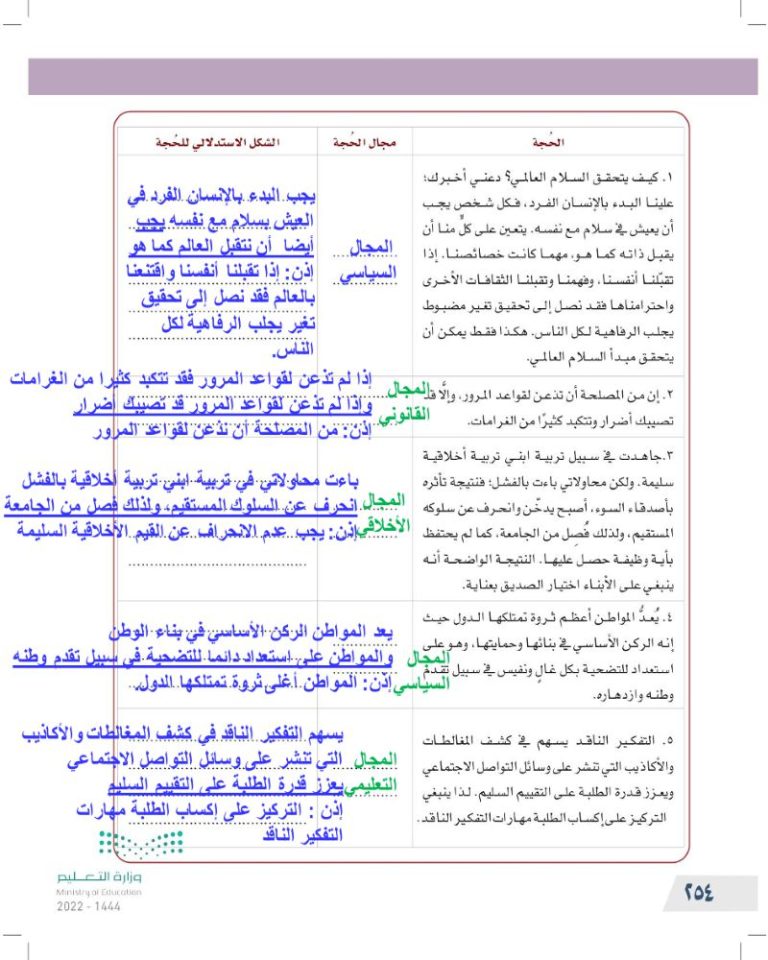 الحُجة
مجال الحُجة
الشكل الاستدلالي للحُجة
١. كيف يتحقق السلام العالمي؟ دعني أخبرك؛
علينا البدء بالإنسان الفرد، فكل شخص يجب
أن يعيش في سلام مع نفسه. يتعين على كلٍّ منا أن
يقبل ذاته كما هو، مهما كانت خصائصنا. إذا
تقبّلنا أنفسنا، وفهمنا وتقبلنا الثقافات الأخرى
واحترامناها فقد نصل إلى تحقيق تغير مضبوط
يجلب الرفاهية لكل الناس. هكذا فقط يمكن أن
يتحقق مبدأ السلام العالمي.
المجال
السياسي
يجب البدء بالإنسان الفرد في
العيش بسلام مع نفسه يجب
أيضا أن نتقبل العالم كما هو
إذن: إذا تقبلنا أنفسنا واقتنعنا
بالعالم فقد نصل إلى تحقيق
تغير يجلب الرفاهية لكل
الناس.
٢. إن من المصلحة أن تذعن لقواعد المرور، وإلَّا قد
تصيبك أضرار وتتكبد كثيرًا من الغرامات.
المجال
القانوني
إذا لم تذعن لقواعد المرور فقد تتكبد كثيرا من الغرامات
وإذا لم تذعن لقواعد المرور قد تصيبك أضرار
إذن: من المصلحة أن تذعن لقواعد المرور
٣. جاهدت في سبيل تربية ابني تربية أخلاقية
سليمة. ولكن محاولاتي باءت بالفشل؛ فنتيجة تأثره
بأصدقاء السوء، أصبح يدخّن وانحرف عن سلوكه
المستقيم، ولذلك فُصِل من الجامعة، كما لم يحتفظ
بأية وظيفة حصل عليها. النتيجة الواضحة أنه
ينبغي على الأبناء اختيار الصديق بعناية.
المجال
الأخلاقي
باءت محاولاتي في تربية ابني تربية أخلاقية بالفشل
انحرف عن السلوك المستقيم، ولذلك فصل من الجامعة
إذن: يجب عدم الانحراف عن القيم الأخلاقية السليمة
٤. يُعدُّ المواطن أعظم ثروة تمتلكها الدول حيث
إنه الركن الأساسي في بنائها وحمايتها، وهو على
استعداد للتضحية بكل غالٍ ونفيس في سبيل تقدم
وطنه وازدهاره.
المجال
السياسي
يعد المواطن الركن الأساسي في بناء الوطن
والمواطن على استعداد دائما للتضحية في سبيل تقدم وطنه
إذن: المواطن أغلى ثروة تمتلكها الدول.
٥. التفكير الناقد يسهم في كشف المغالطات
والأكاذيب التي تنشر على وسائل التواصل الاجتماعي
ويعزز قدرة الطلبة على التقييم السليم. لذا ينبغي
التركيز على إكساب الطلبة مهارات التفكير الناقد.
المجال
التعليمي
يسهم التفكير الناقد في كشف المغالطات والأكاذيب
التي تنشر على وسائل التواصل الاجتماعي
يعزز قدرة الطلبة على التقييم السليم
إذن : التركيز على إكساب الطلبة مهارات
التفكير الناقد
وزارة التعليم
Ministry of Education
2022 - 1444
٢٥٤